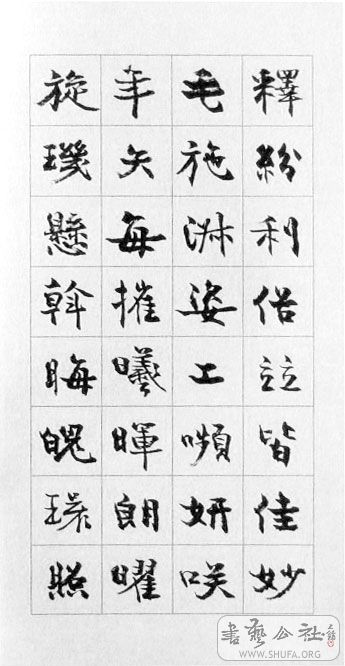 釋紛利俗竝皆佳妙
毛施淑姿工嚬妍咲
年矢每摧曦暉朗曜
旋璣懸斡晦魄環照
書藝公社
WWW.SHUFA.ORG